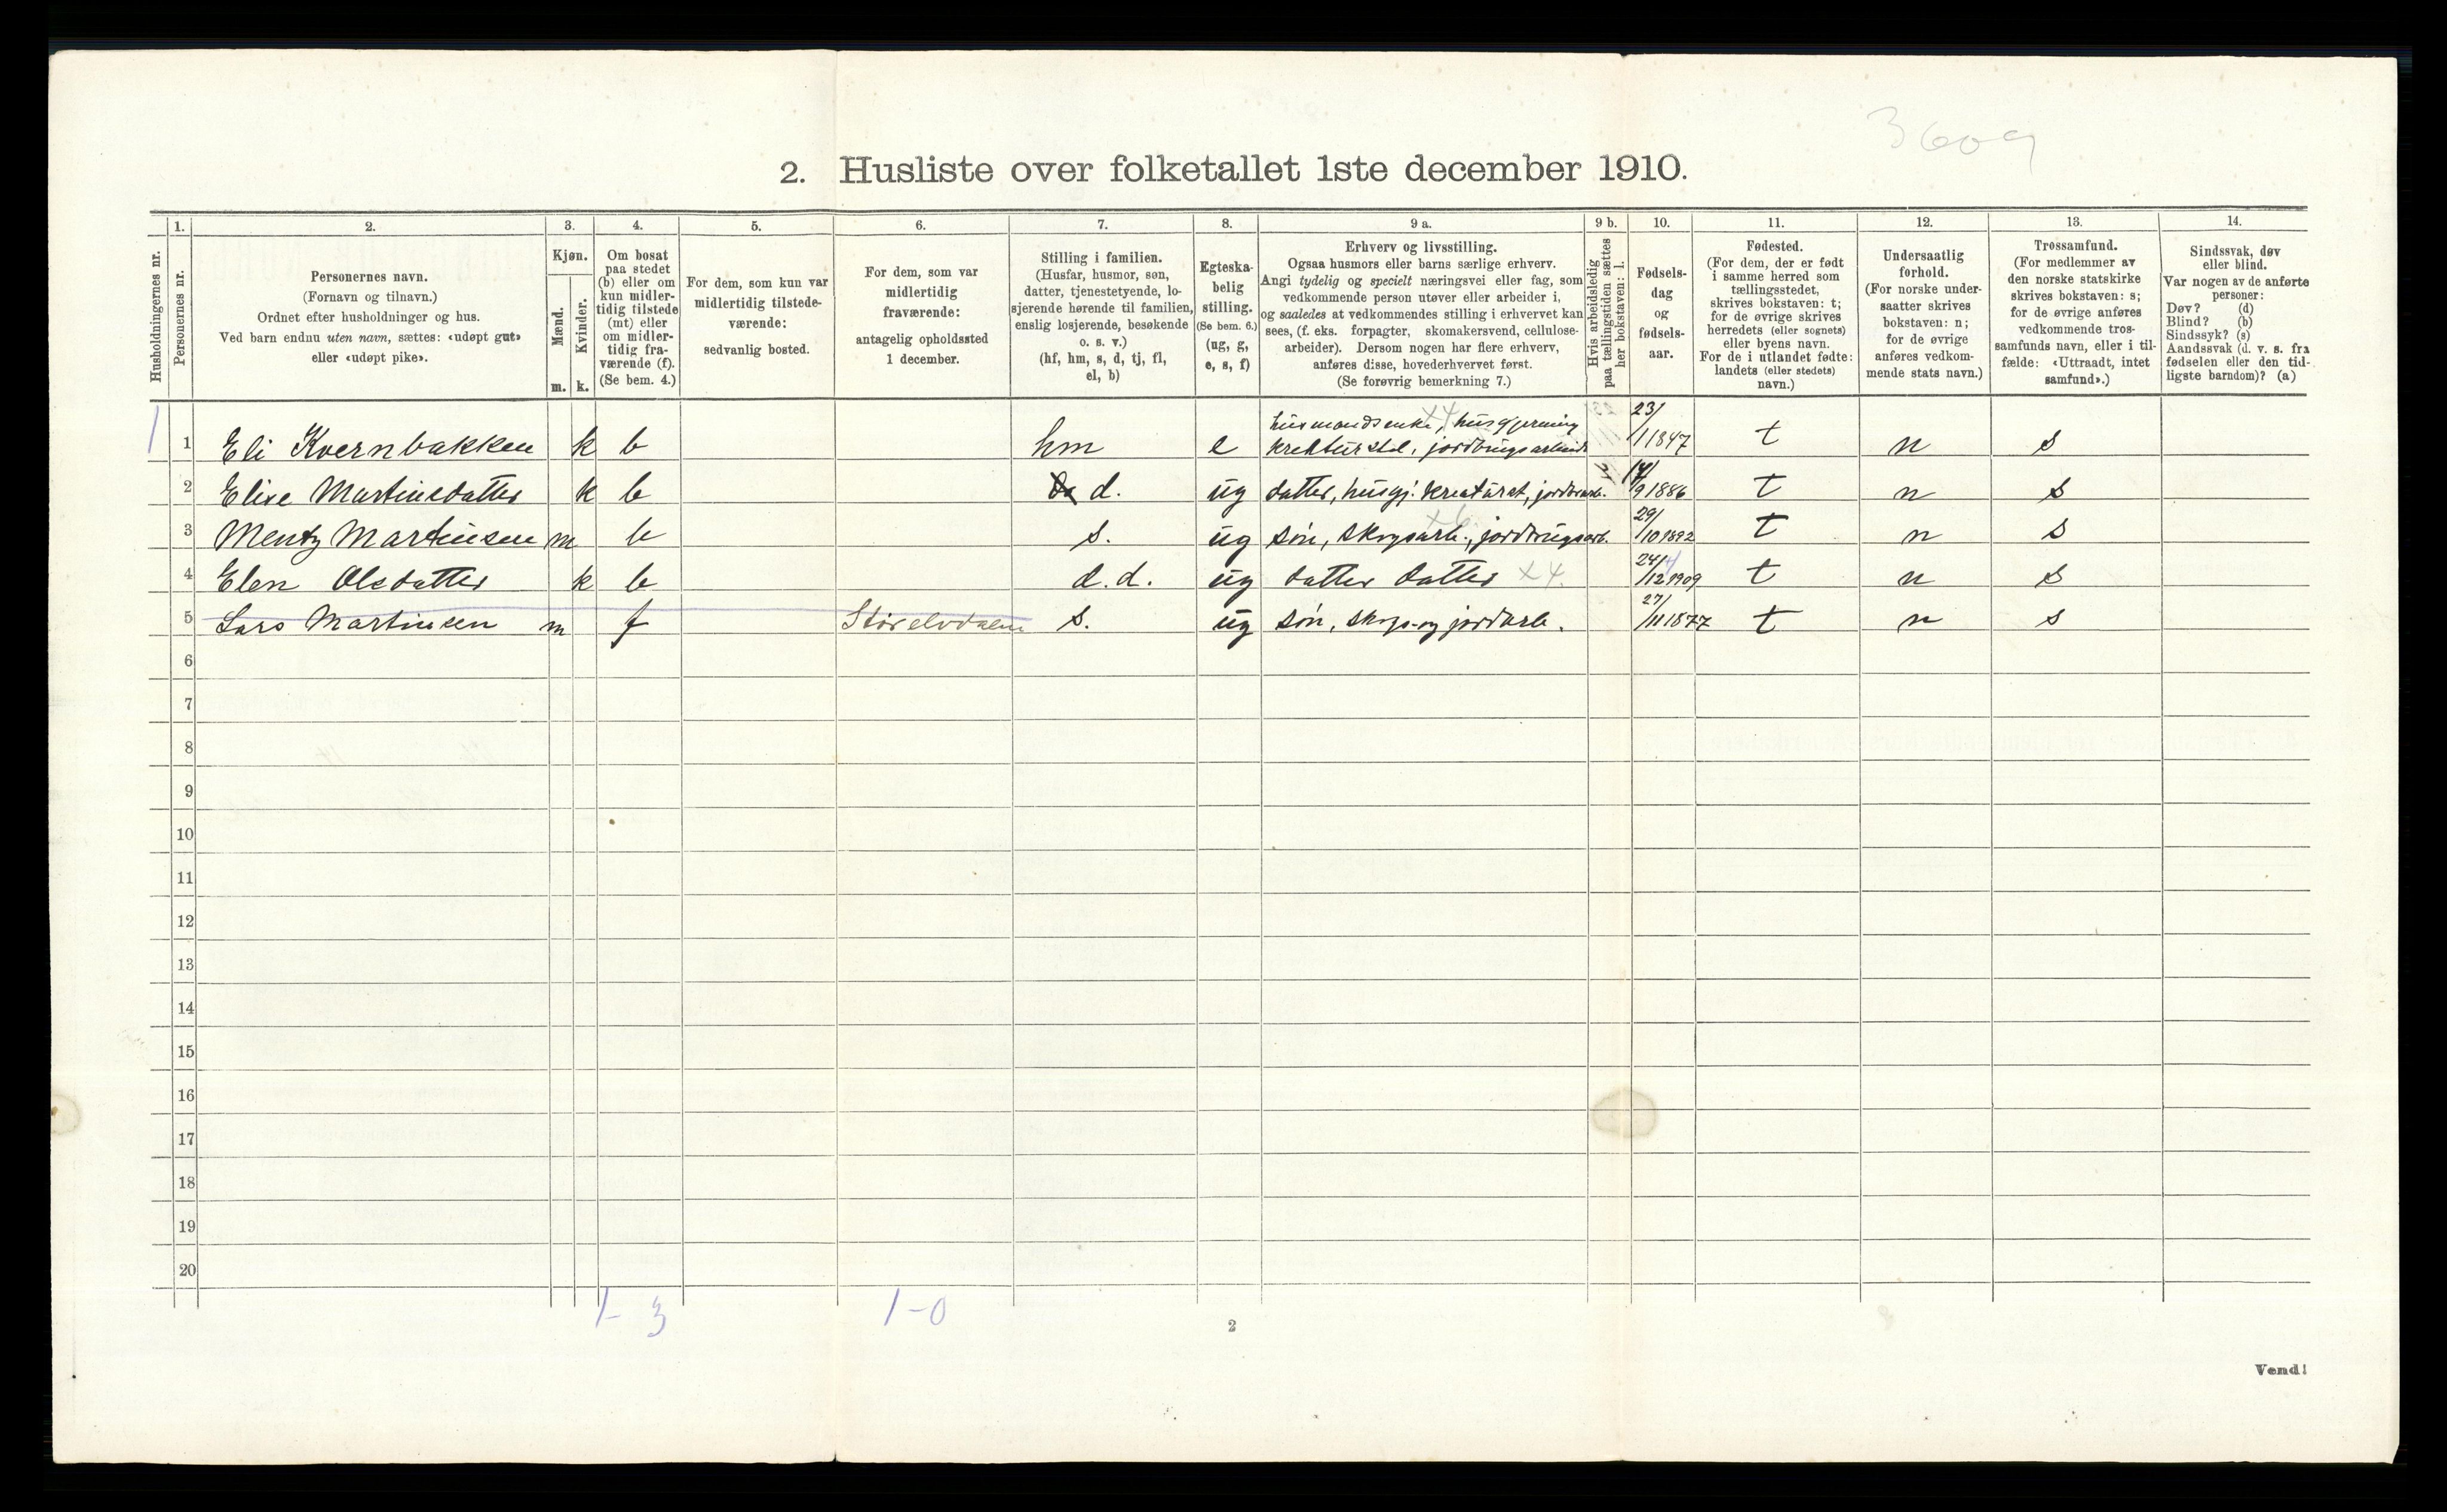 3609
2. Husliste over folketallet 1ste december 1910.
Husholdningernes nr.
1.
Personernes nr.
2.
Personernes navn.
(Fornavn og tilnavn.)
Ordnet efter husholdninger og hus.
Ved barn endnu uten navn, sættes: «udøpt gut»
eller «udøpt pike».
3.
Kjøn.
Mænd.
Kvinder.
m. k.
4.
Om bosat
paa stedet
(b) eller om
kun midler-
tidig tilstede
(mt) eller
om midler-
tidig fra-
værende (f).
(Se bem. 4.)
5.
For dem, som kun var
midlertidig tilstede-
værende:
sedvanlig bosted.
6.
For dem, som var
midlertidig
fraværende:
antagelig opholdssted
1 december.
7.
Stilling i familien.
(Husfar, husmor, søn,
datter, tjenestetyende, lo-
sjerende hørende til familien,
enslig losjerende, besøkende
o. s. v.)
(hf, hm, s, d, tj, fl,
el, b)
8.
Egteska-
belig
stilling.
(Se bem. 6.)
(ug, g,
e, s, f)
9 a.
Erhverv og livsstilling.
Ogsaa husmors eller barns særlige erhverv.
Angi tydelig og specielt næringsvei eller fag, som
vedkommende person utøver eller arbeider i,
og saaledes at vedkommendes stilling i erhvervet kan
sees, (f. eks. forpagter, skomakersvend, cellulose-
arbeider). Dersom nogen har flere erhverv,
anføres disse, hovederhvervet først.
(Se forøvrig bemerkning 7.)
9 b.
Hvis arbeidsledig
paa tællingstiden sættes
her bokstaven: l.
10.
Fødsels-
dag
og
fødsels-
aar.
11.
Fødested.
(For dem, der er født
i samme herred som
tællingsstedet,
skrives bokstaven: t;
for de øvrige skrives
herredets (eller sognets)
eller byens navn.
For de i utlandet fødte:
landets (eller stedets)
navn.)
12.
Undersaatlig
forhold.
(For norske under-
saatter skrives
bokstaven: n;
for de øvrige
anføres vedkom-
mende stats navn.)
13.
Trossamfund.
(For medlemmer av
den norske statskirke
skrives bokstaven: s;
for de øvrige anføres
vedkommende tros-
samfunds navn, eller i til-
fælde: «Uttraadt, intet
samfund».)
14.
Sindssvak, døv
eller blind.
Var nogen av de anførte
personer:
Døv? (d)
Blind? (b)
Sindssyk? (s)
Aandssvak (d. v. s. fra
fødselen eller den tid-
ligste barndom)? (a)
1 1 Eli Kvernbakken k b hm e husmandsenke, husgjerning x4 23/1 1847 t n s
kreaturstel, jordbrugsarbeide
2 Elise Martinsdatter k b d. ug datter, husgj. kreaturst, jordbrarb. 14/9 1886 t n s
3 Mentz Martinsen m b s. ug søn, skogsarb., jordbrugsarb. x6 29/10 1892 t n s
4 Elen Olsdatter k b d.d. ug datter datter x4. 24/12 1909 t n s
5 Lars Martinsen m f Storelvdalen s. ug søn, skogs- og jordarb. 27/11 1877 t n s
6
7
8
9
10
11
12
13
14
15
16
17
18
19
20
1-3 1-0
2
Vend!